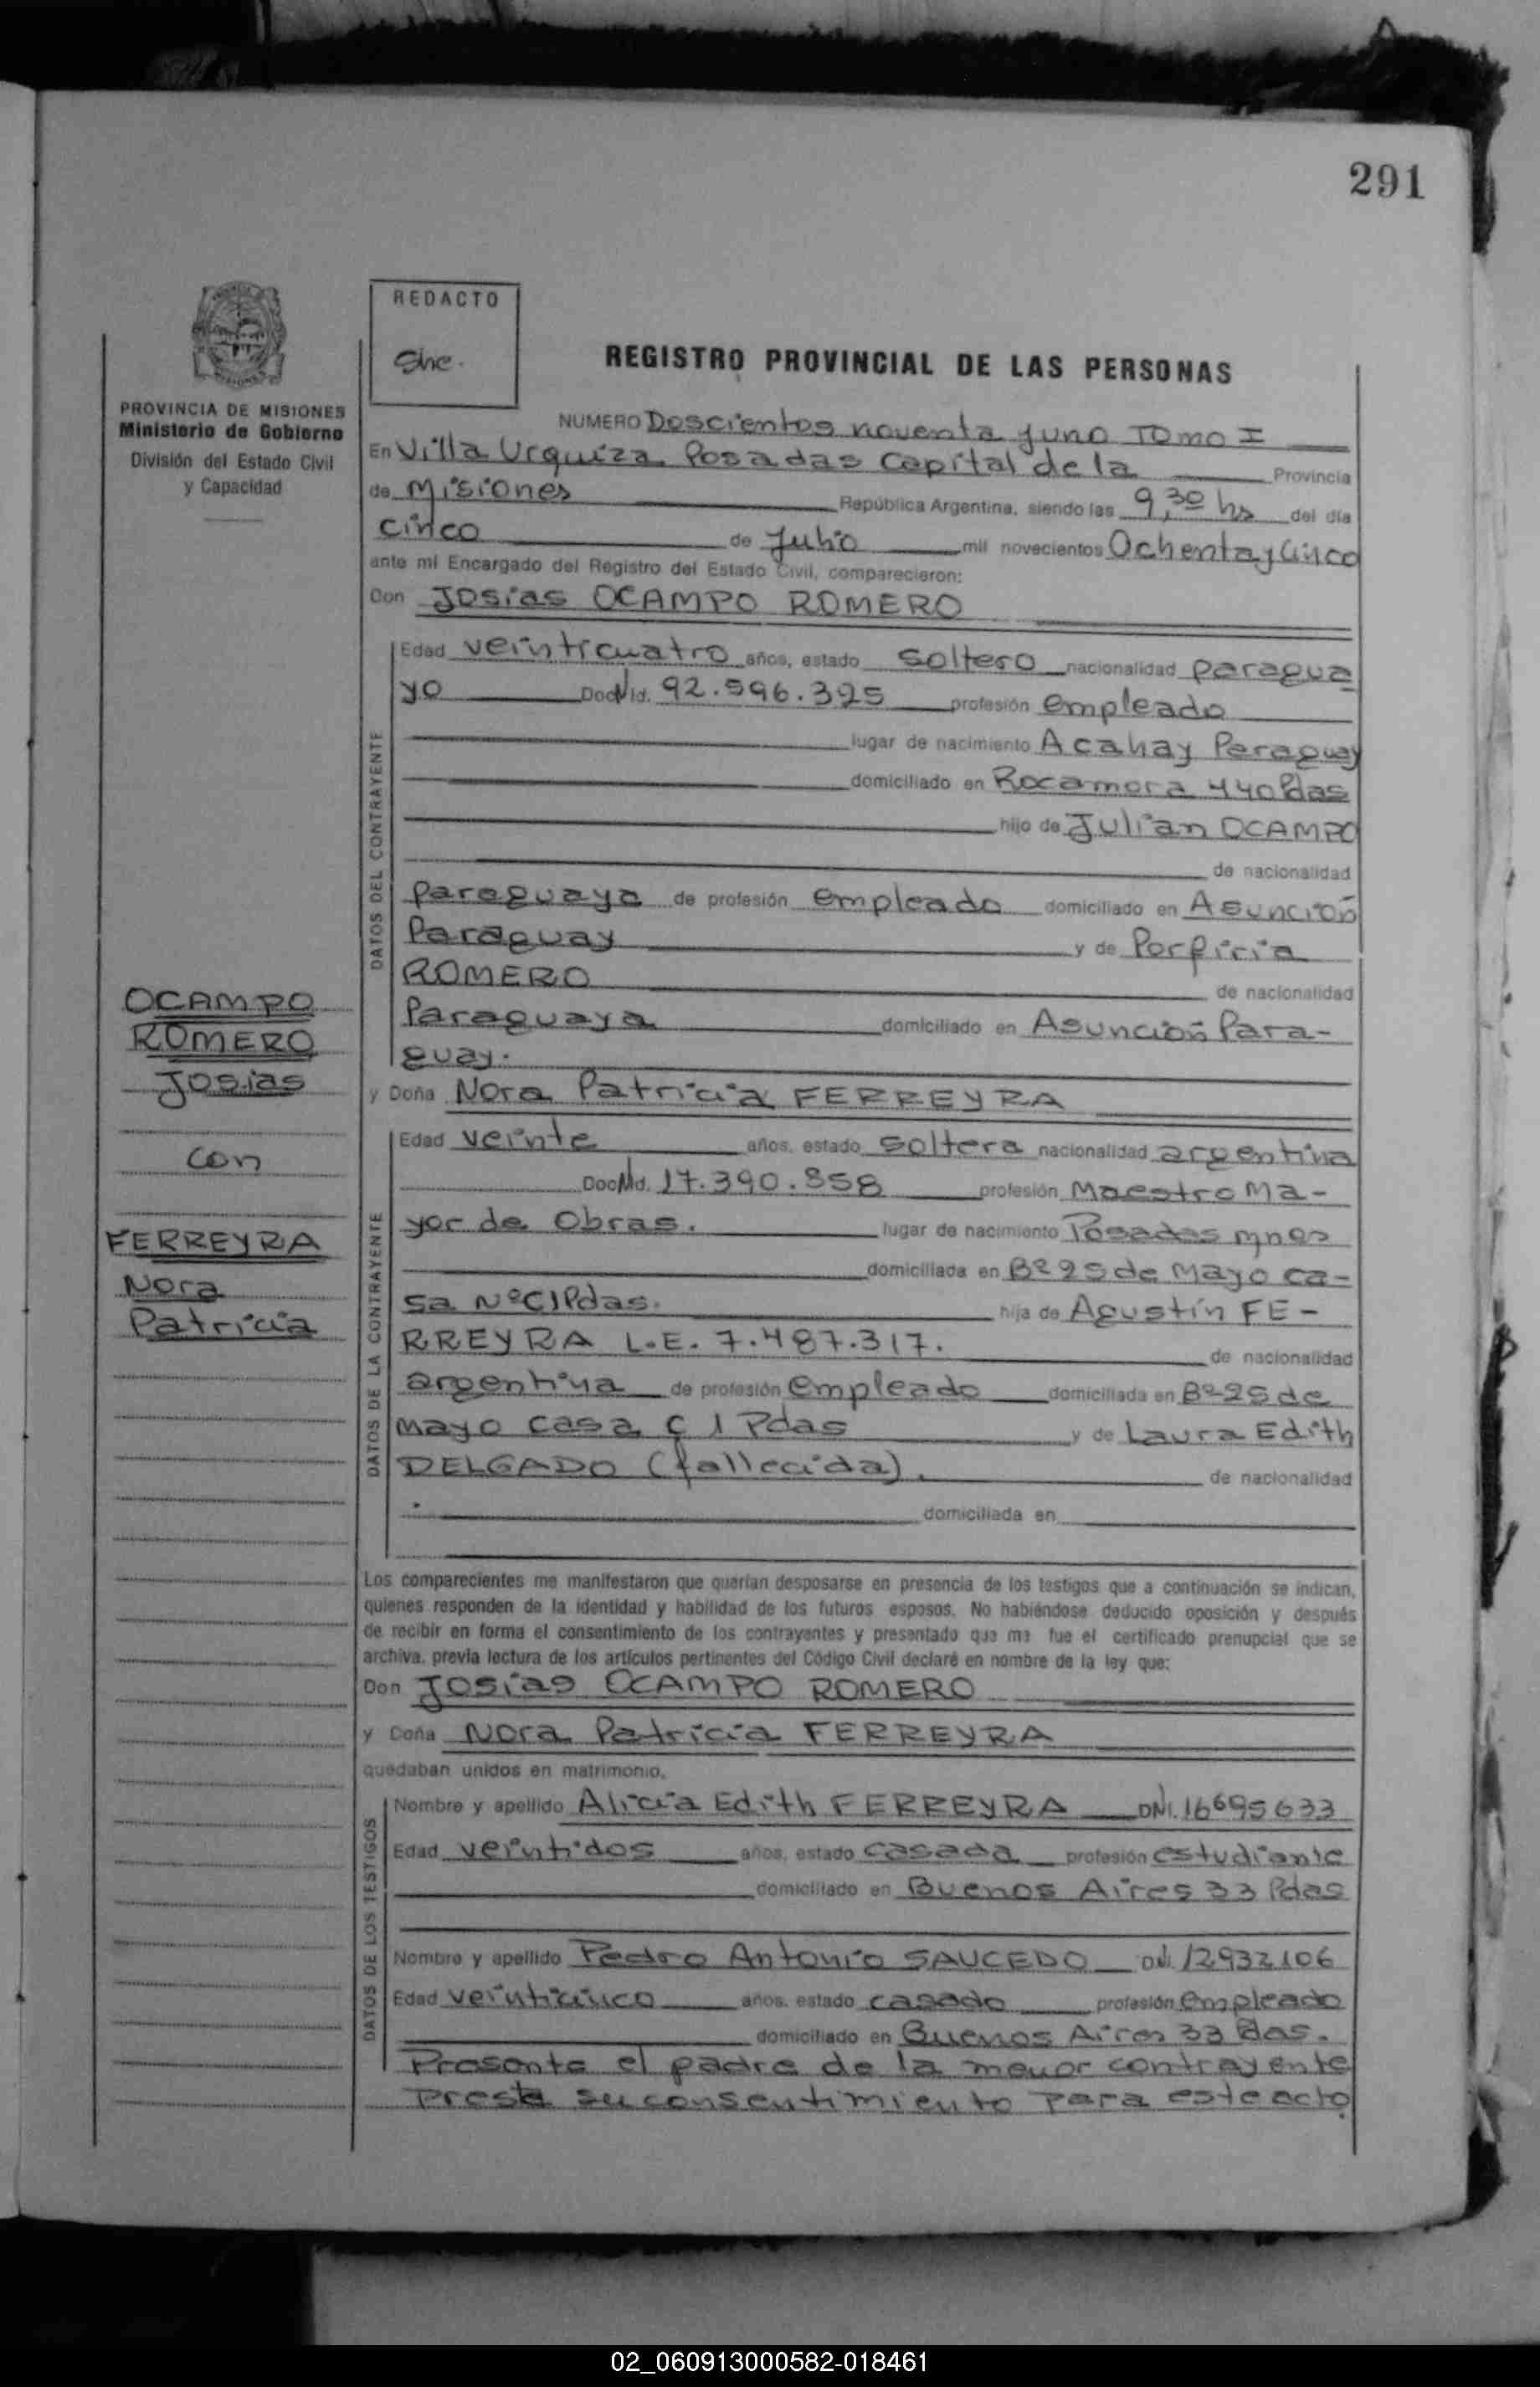 291
REDACTO
REGISTRO PROVINCIAL DE LAS PERSONAS
PROVINCIA DE MISIONES
Ministerio de Gobierno
División del Estado Civil
y Capacidad
NUMERO Doscientos noventa y uno Tomo I
En Villa Urquiza Posadas Capital de la Provincia
de Misiones República Argentina, siendo las 9,30 hs del día
cinco de Julio mil novecientos Ochenta y cinco
ante mi Encargado del Registro del Estado Civil, comparecieron:
Don Josias OCAMPO ROMERO
DATOS DEL CONTRAYENTE
Edad veinticuatro años, estado soltero nacionalidad paragua
yo Doc Nid. 92.596.325 profesión empleado
lugar de nacimiento Acahay Paraguay
domiciliado en Rocamora 440 Pdas
hijo de Julian OCAMPO
de nacionalidad
paraguaya de profesión empleado domiciliado en Asunción
Paraguay y de Porfiria
ROMERO de nacionalidad
Paraguaya domiciliado en Asunción Para-
guay.
y Doña Nora Patricia FERREYRA
OCAMPO
ROMERO
Josias
con
FERREYRA
Nora
Patricia
DATOS DE LA CONTRAYENTE
Edad veinte años, estado soltera nacionalidad argentina
Doc Nid. 17.390.858 profesión Maestro Ma-
yor de Obras. lugar de nacimiento Posadas Mnes
domiciliada en Bº 25 de Mayo ca-
sa Nº C1 Pdas. hija de Agustín FE-
RREYRA L.E. 7.487.317. de nacionalidad
argentina de profesión empleado domiciliada en Bº 25 de
mayo casa C 1 Pdas y de Laura Edith
DELGADO (fallecida). de nacionalidad
domiciliada en
Los comparecientes me manifestaron que querían desposarse en presencia de los testigos que a continuación se indican,
quienes responden de la identidad y habilidad de los futuros esposos. No habiéndose deducido oposición y después
de recibir en forma el consentimiento de los contrayentes y presentado que me fue el certificado prenupcial que se
archiva, previa lectura de los artículos pertinentes del Código Civil declaré en nombre de la ley que:
Don Josias OCAMPO ROMERO
y Doña Nora Patricia FERREYRA
quedaban unidos en matrimonio.
DATOS DE LOS TESTIGOS
Nombre y apellido Alicia Edith FERREYRA DNI. 16695633
Edad veintidos años, estado casada profesión estudiante
domiciliado en Buenos Aires 33 Pdas
Nombre y apellido Pedro Antonio SAUCEDO DNI. 12932106
Edad veinticinco años, estado casado profesión empleado
domiciliado en Buenos Aires 33 Pdas.
Presente el padre de la menor contrayente
presta su consentimiento para este acto
02_060913000582-018461